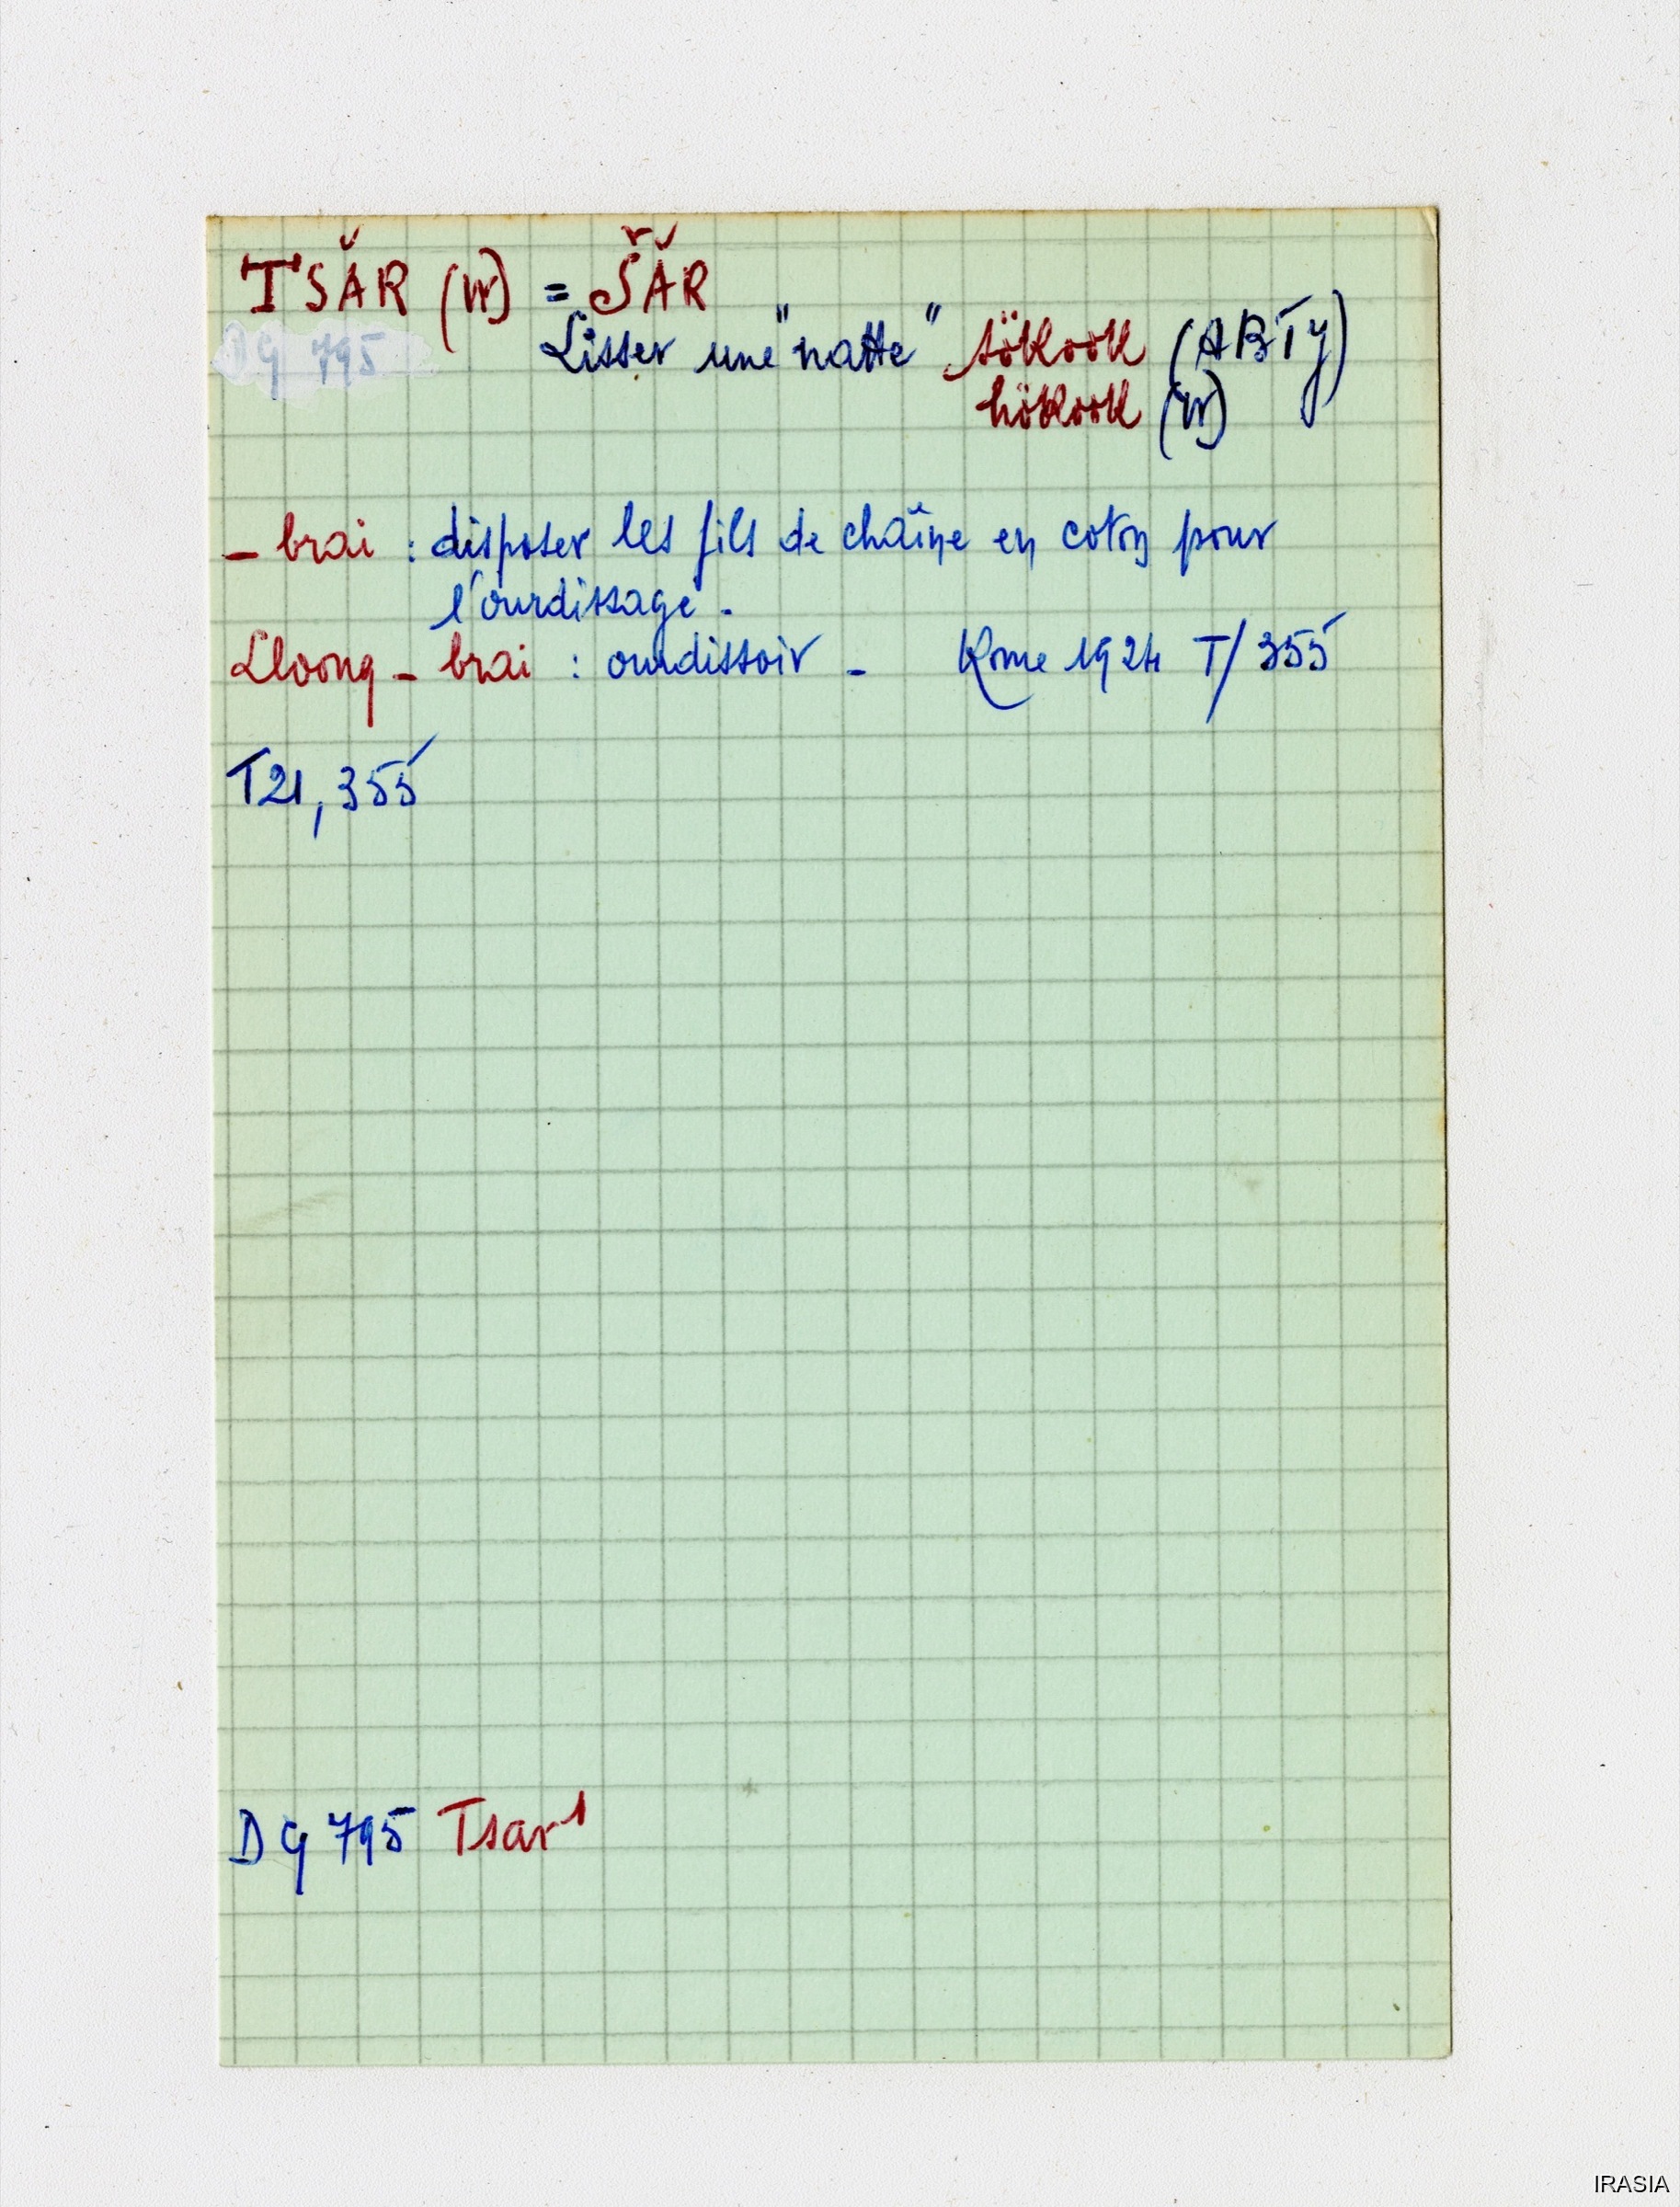 TSĂR (W) = ŠĂR
DG 795
Lisser une "natte" sökook (ABTY)
hökook (W)
- brai : disposer les fils de chaîne en coton pour
l'ourdissage.
Lloong - brai : ourdissoir - Rome 1924 T/355
T21, 355
DG 795 Tsar¹
IRASIA